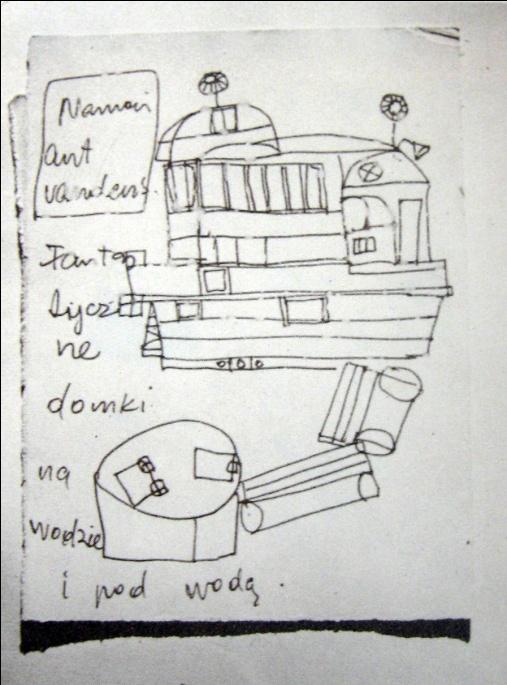 Namai
ant
vandens.
Fantas
tycz
ne
domki
na
wodzie
i pod wodą.